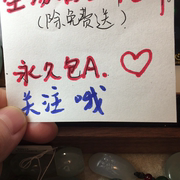 (除免费送)
永久包A.
关注 哦